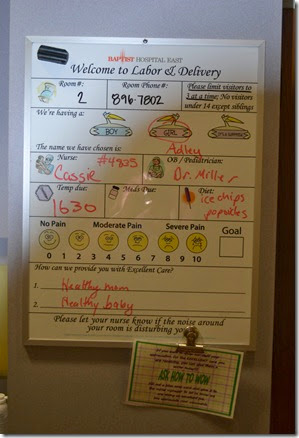 BAPTIST HOSPITAL EAST
Welcome to Labor & Delivery
Room #: Room Phone #: Please limit visitors to
2 896-7802 3 at a time; No visitors
under 14 except siblings
We're having a:
BOY GIRL IT'S A SURPRISE
The name we have chosen is: Adley
Nurse: #4825 OB / Pediatrician:
Cassie Dr. Miller
Temp due: Meds Due: Diet:
1630 ice chips
popsicles
No Pain Moderate Pain Severe Pain Goal
0 1 2 3 4 5 6 7 8 9 10
How can we provide you with Excellent Care?
1. Healthy mom
2. Healthy baby
Please let your nurse know if the noise around
your room is disturbing you.
ASK HOW TO WOW